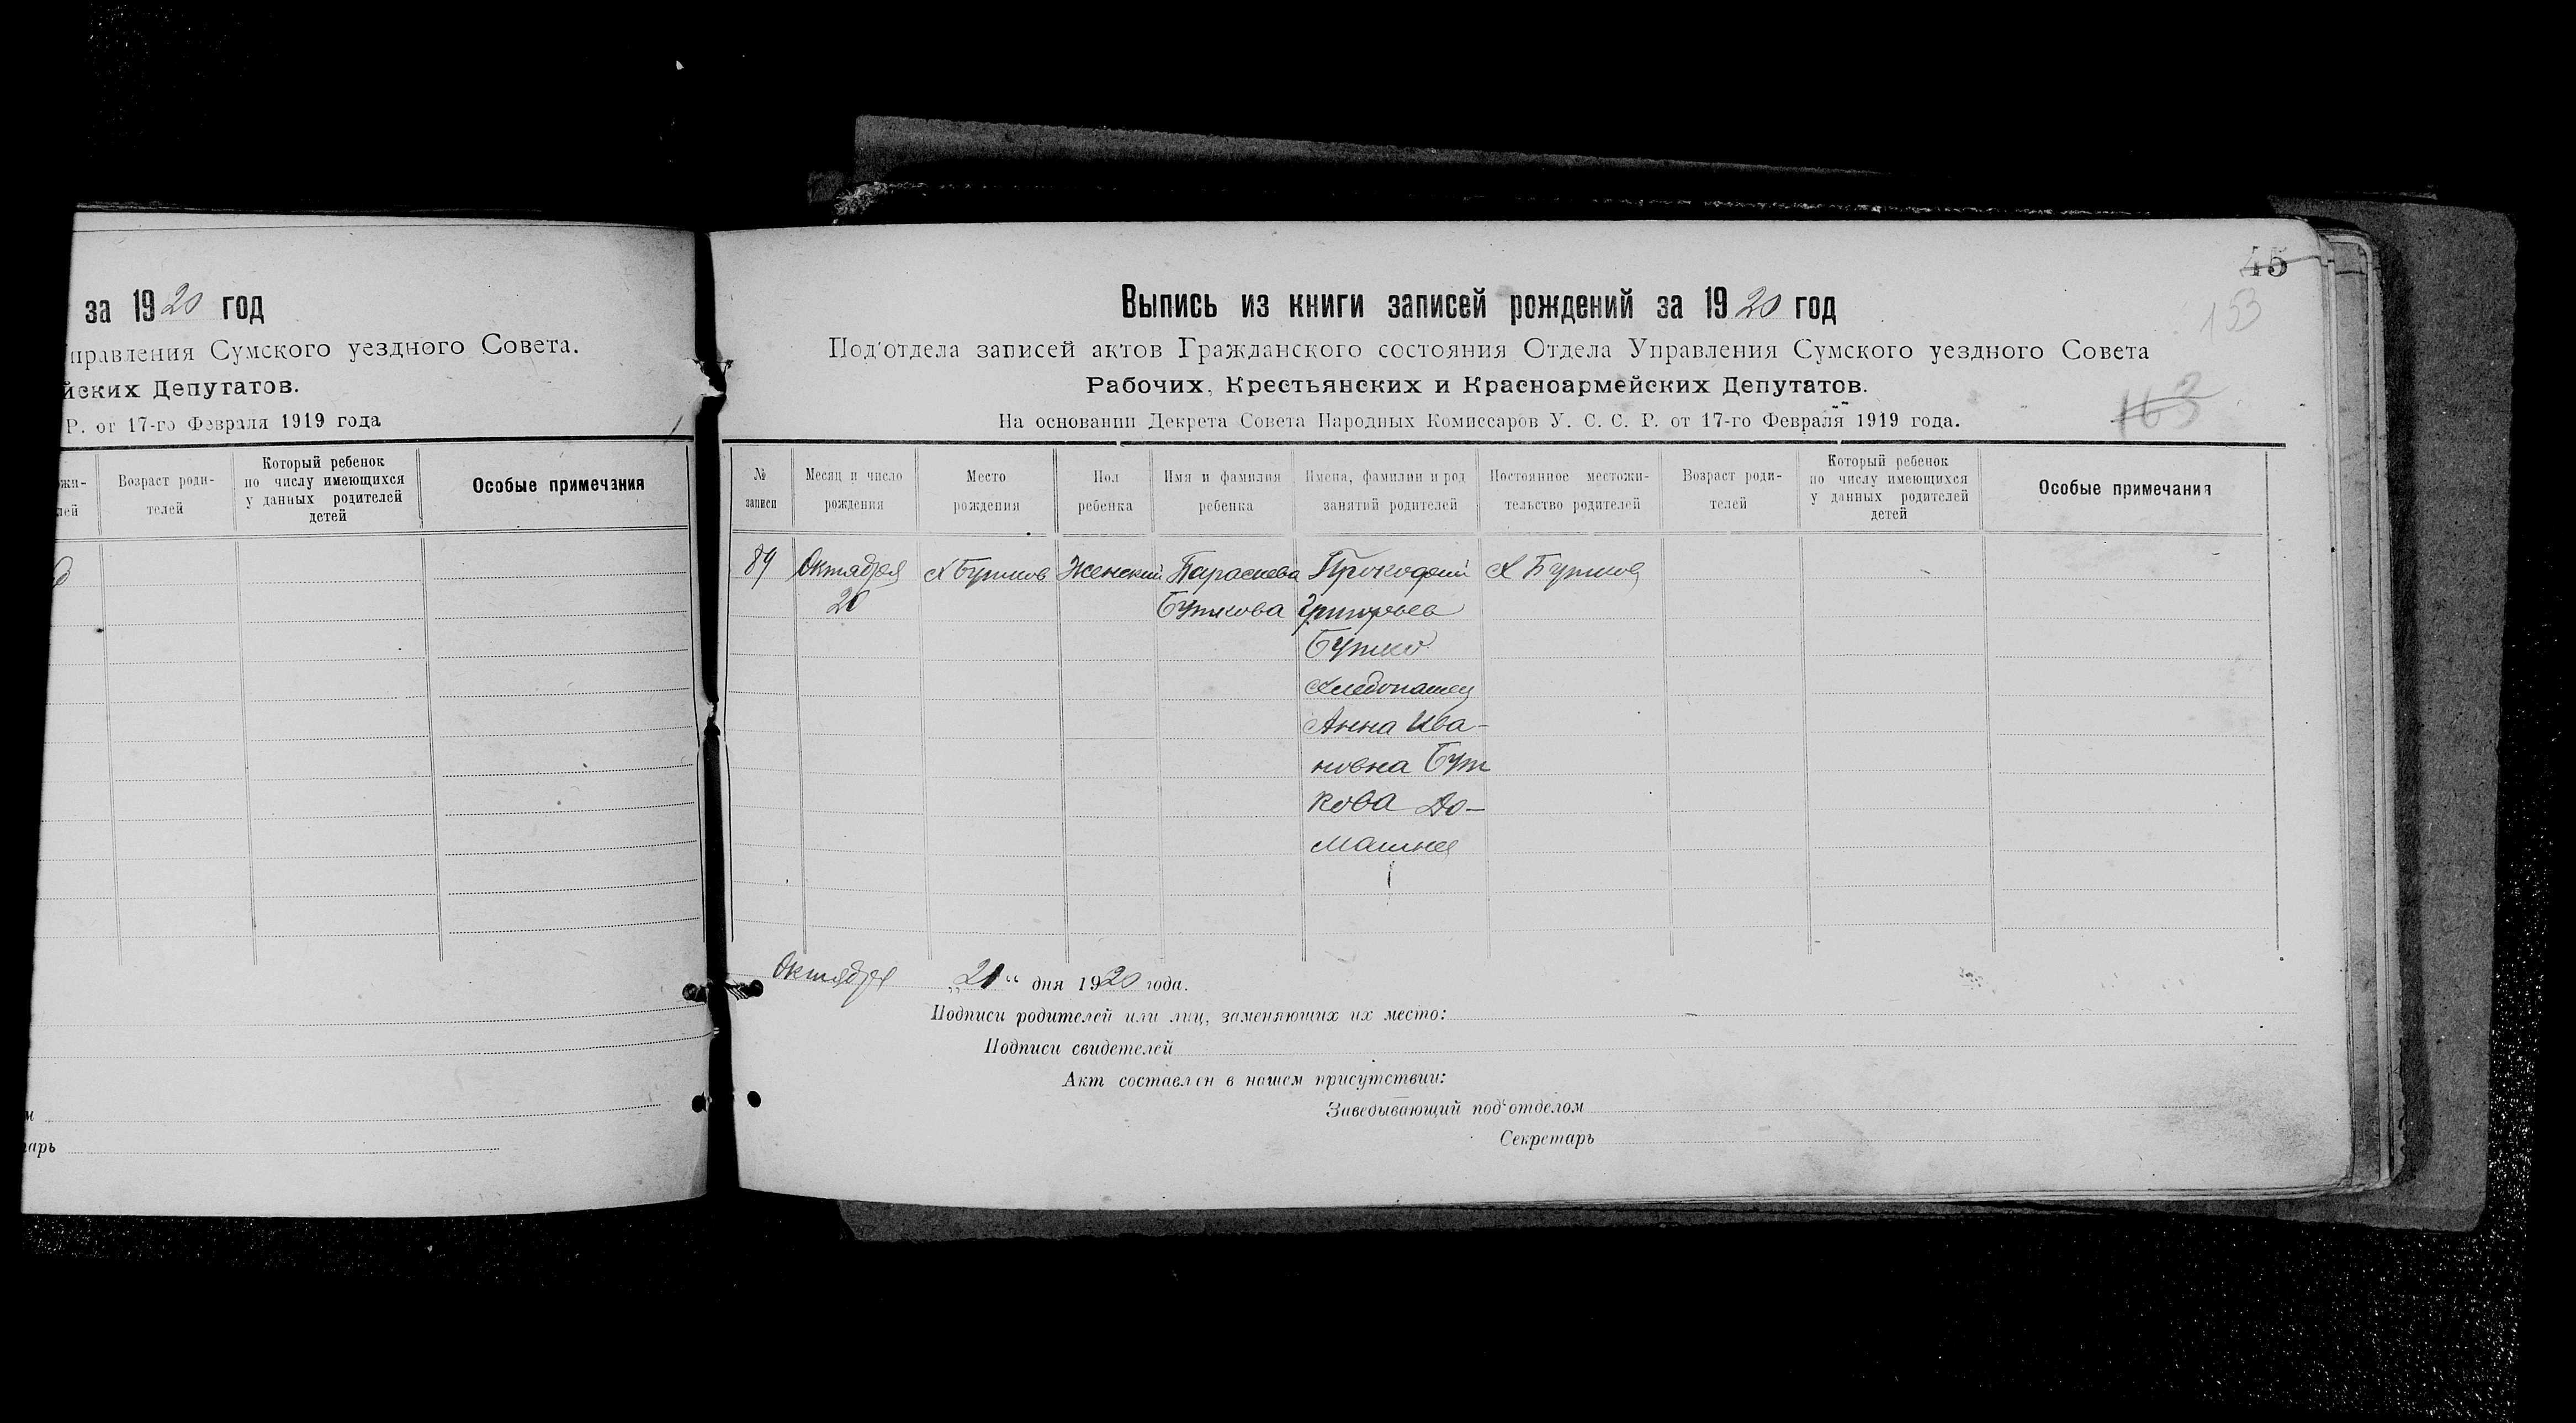 за 1920 год
правления Сумского уездного Совета.
йских Депутатов.
Р. от 17-го Февраля 1919 года
жи-
лей
Возраст роди-
телей
Который ребенок
по числу имеющихся
у данных родителей
детей
Особые примечания
арь
45
153
163
Выпись из книги записей рождений за 1920 год
Под'отдела записей актов Гражданского состояния Отдела Управления Сумского уездного Совета
Рабочих, Крестьянских и Красноармейских Депутатов.
На основании Декрета Совета Народных Комиссаров У. С. С. Р. от 17-го Февраля 1919 года.
№
записи
Месяц и число
рождения
Место
рождения
Пол
ребенка
Имя и фамилия
ребенка
Имена, фамилии и род
занятий родителей
Постоянное местожи-
тельство родителей
Возраст роди-
телей
Который ребенок
по числу имеющихся
у данных родителей
детей
Особые примечания
89
Октября
20
Х Бутков
Женский
Параскева
Буткова
Прокофий
Григорьев
Бутко
Хлебопашец
Анна Ива-
новна Бут
кова До-
машнея
Х Бутков
Октября „21“ дня 1920 года.
Подписи родителей или лиц, заменяющих их место:
Подписи свидетелей
Акт составлен в нашем присутствии:
Заведывающий под'отделом
Секретарь